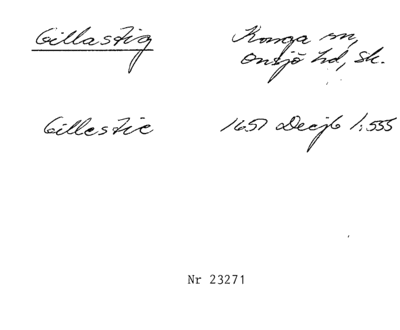 Gillastig Konga sn,
Onsjö hd, Sk.
Gillestie 1657 Decjb 1:555
Nr 23271